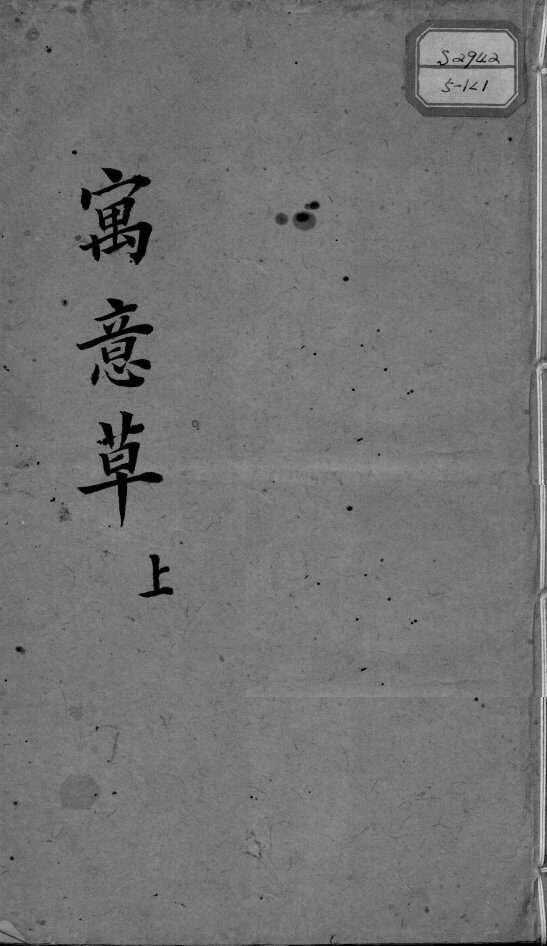 S2942
5-121
寓意草
上